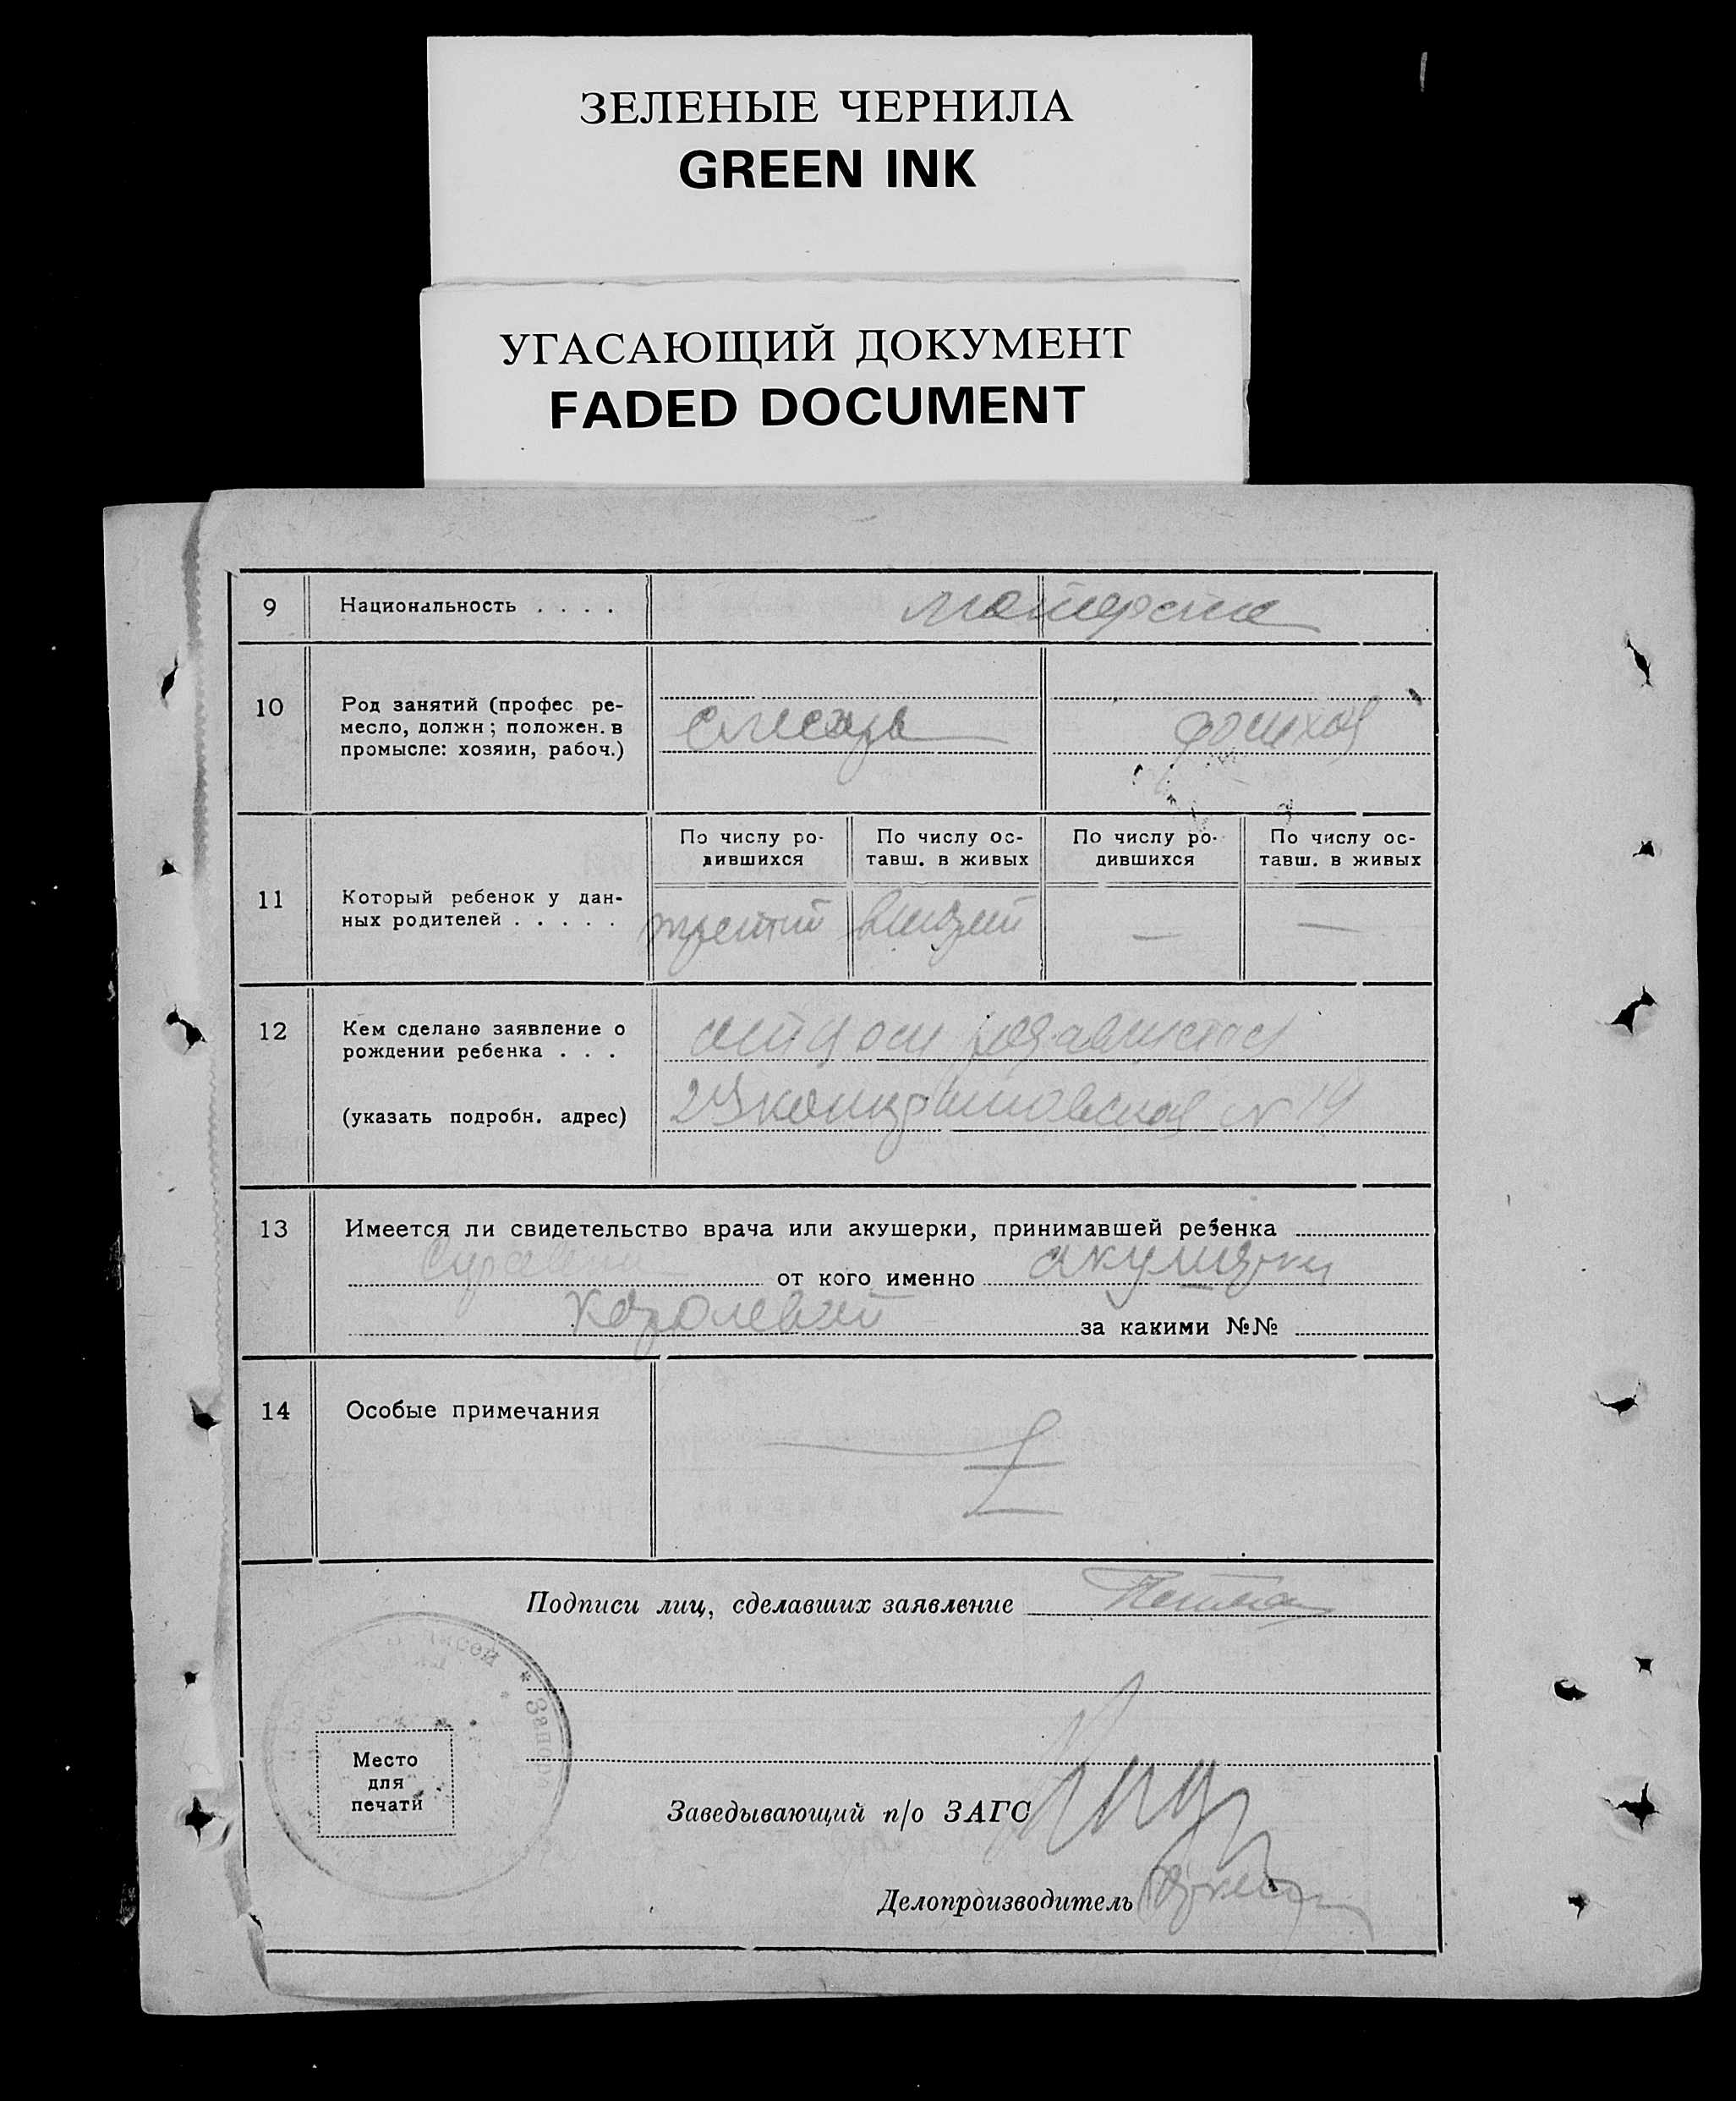 ЗЕЛЕНЫЕ ЧЕРНИЛА
GREEN INK
УГАСАЮЩИЙ ДОКУМЕНТ
FADED DOCUMENT
9 Национальность . . . .
10 Род занятий (профес ре-
месло, должн; положен. в
промысле: хозяин, рабоч.)
слесарь
По числу ро-
дившихся
По числу ос-
тавш. в живых
По числу ро-
дившихся
По числу ос-
тавш. в живых
11 Который ребенок у дан-
ных родителей . . . . .
третий — —
12 Кем сделано заявление о
рождении ребенка . . .
отцом
(указать подробн. адрес)
№ 19
13 Имеется ли свидетельство врача или акушерки, принимавшей ребенка
справка от кого именно акушерки
Королевой за какими №№
14 Особые примечания
Подписи лиц, сделавших заявление
Место
для
печати
Заведывающий п/о ЗАГС
Делопроизводитель